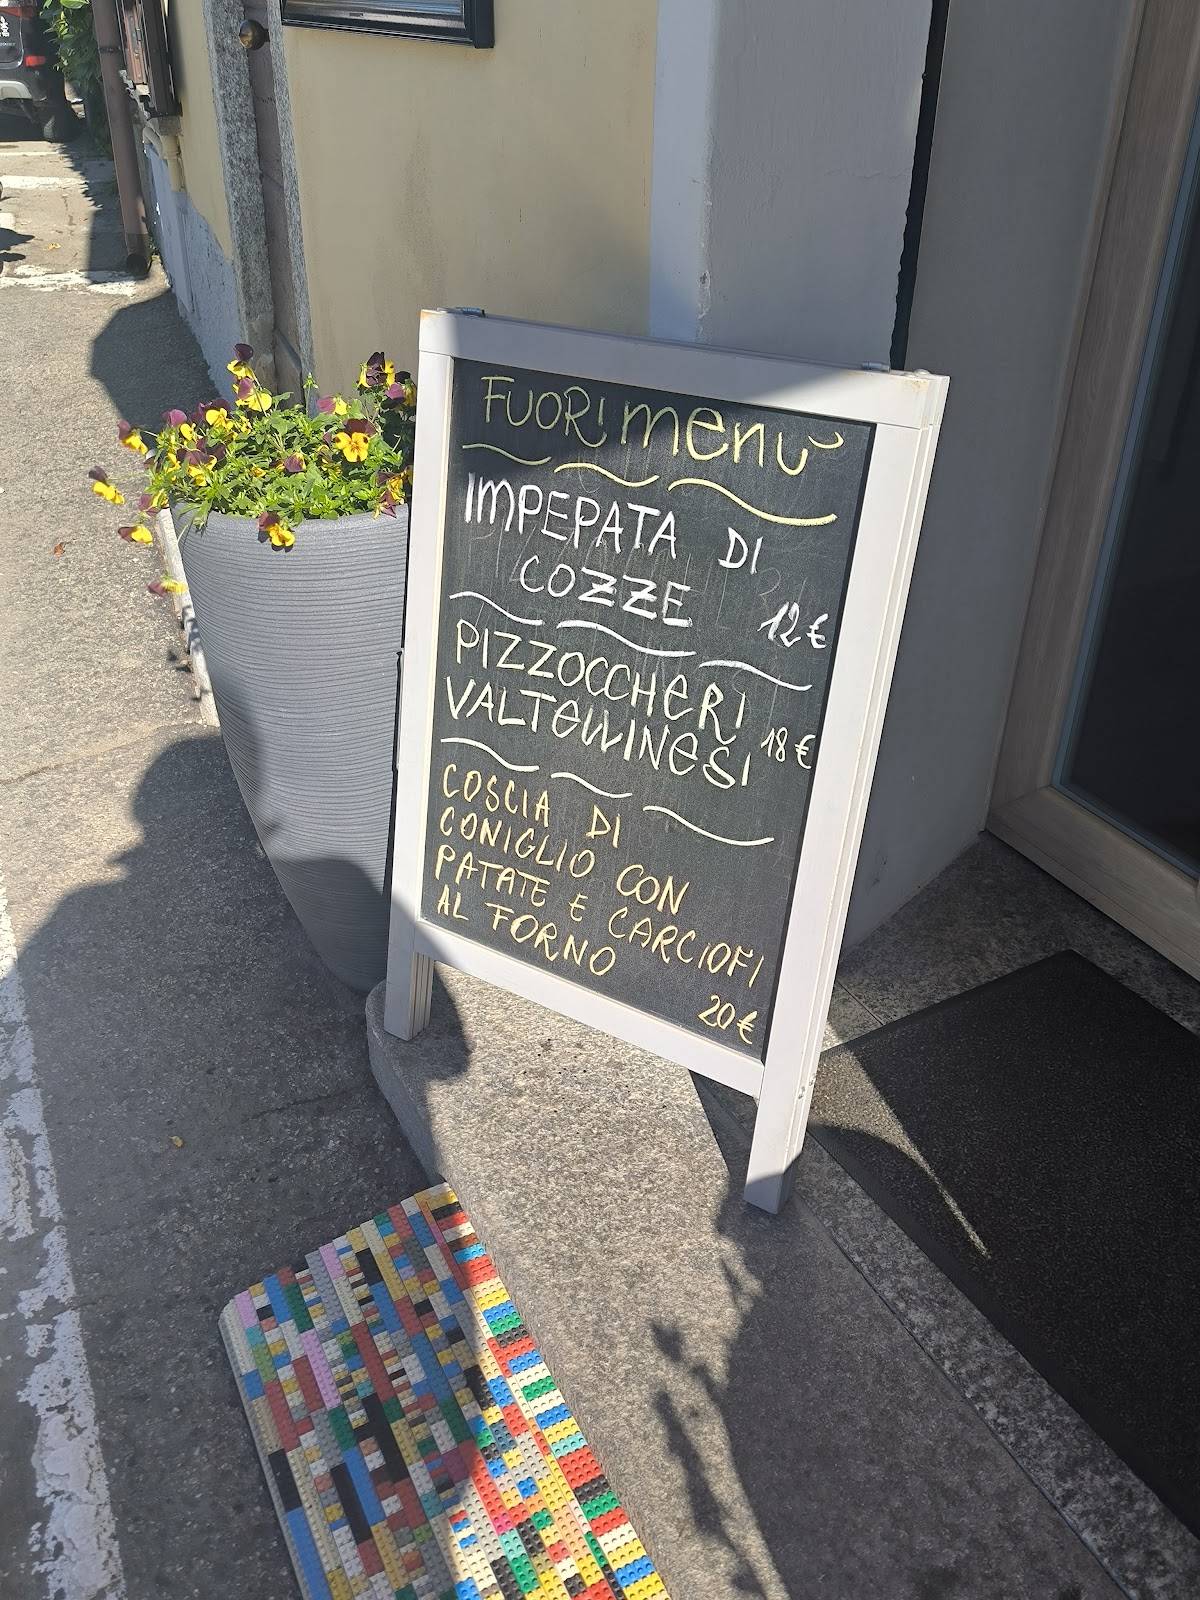 FUORI menù
IMPEPATA DI
COZZE 12€
PIZZOCCHERI
VALTELLINESI 18€
COSCIA DI
CONIGLIO CON
PATATE E CARCIOFI
AL FORNO
20€